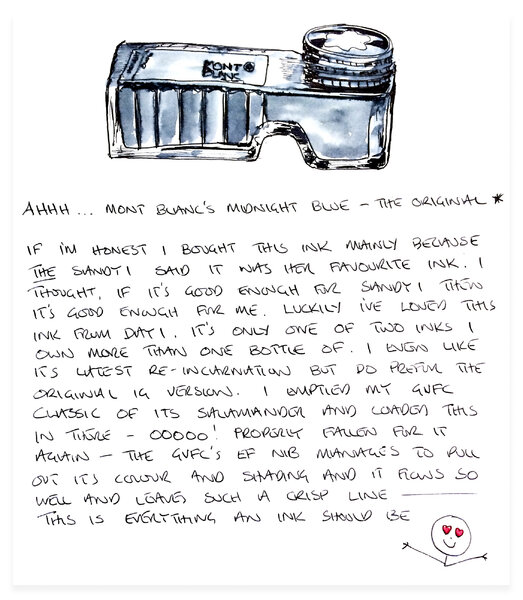 MONT
BLANC
AHHH ... MONT BLANC'S MIDNIGHT BLUE – THE ORIGINAL *
IF I'M HONEST I BOUGHT THIS INK MAINLY BECAUSE
THE SANDY1 SAID IT WAS HER FAVOURITE INK. I
THOUGHT, IF IT'S GOOD ENOUGH FOR SANDY1 THEN
IT'S GOOD ENOUGH FOR ME. LUCKILY I'VE LOVED THIS
INK FROM DAY1. IT'S ONLY ONE OF TWO INKS I
OWN MORE THAN ONE BOTTLE OF. I EVEN LIKE
ITS LATEST RE-INCARNATION BUT DO PREFER THE
ORIGINAL IG VERSION. I EMPTIED MY GVFC
CLASSIC OF ITS SALAMANDER AND LOADED THIS
IN THERE – OOOOO! PROPERLY FALLEN FOR IT
AGAIN – THE GVFC'S EF NIB MANAGES TO PULL
OUT ITS COLOUR AND SHADING AND IT FLOWS SO
WELL AND LEAVES SUCH A CRISP LINE ———
THIS IS EVERYTHING AN INK SHOULD BE